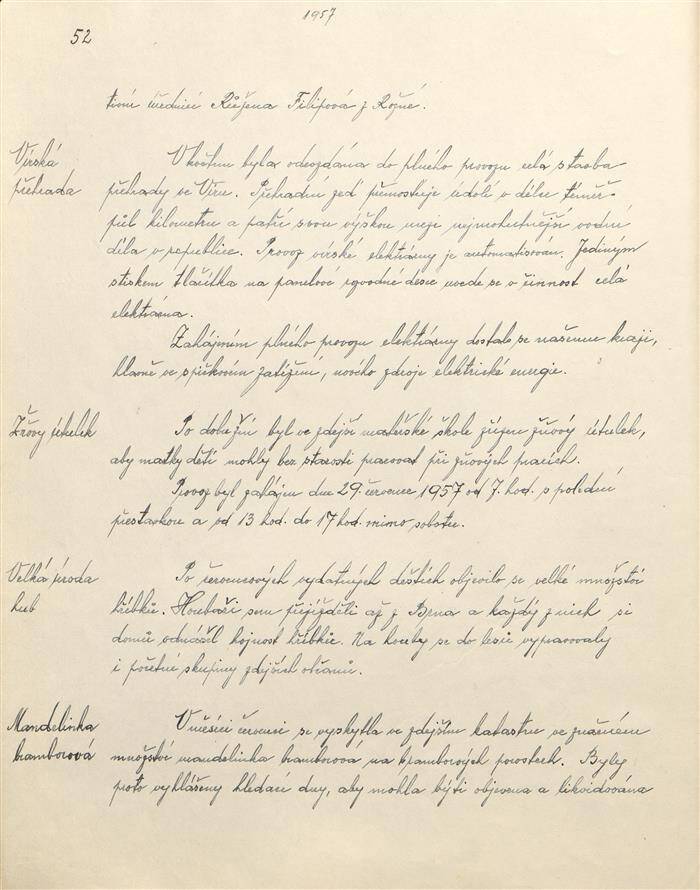 1957
52
tivní úřednicí Růžena Filipová z Rožné.
Vírská
přehrada
V květnu byla odevzdána do plného provozu celá stavba
přehrady ve Víru. Přehradní zeď přemosťuje údolí v délce téměř
půl kilometru a patří svou výškou mezi nejmohutnější vodní
díla v republice. Provoz vírské elektrárny je automatisován. Jediným
stiskem tlačítka na panelové rozvodné desce uvede se v činnost celá
elektrárna.
Zahájením plného provozu elektrárny dostalo se našemu kraji,
hlavně ve špičkovém zatížení, nového zdroje elektrické energie.
Žňový útulek
Po dobu žní byl ve zdejší mateřské škole zřízen žňový útulek,
aby matky dětí mohly bez starosti pracovat při žňových pracích.
Provoz byl zahájen dne 29. července 1957 od 7. hod. s polední
přestávkou a od 13 hod. do 17 hod. mimo sobotu.
Velká úroda
hub
Po červencových vydatných deštích objevilo se velké množství
hřibků. Houbaři sem přijížděli až z Brna a každý z nich si
domů odnášel hojnost hřibků. Na houby se do lesů vypravovaly
i početné skupiny zdejších občanů.
Mandelinka
bramborová
V měsíci červenci se vyskytla ve zdejším katastru ve značném
množství mandelinka bramborová na bramborových porostech. Byly
proto vyhlášeny hledací dny, aby mohla býti objevena a likvidována